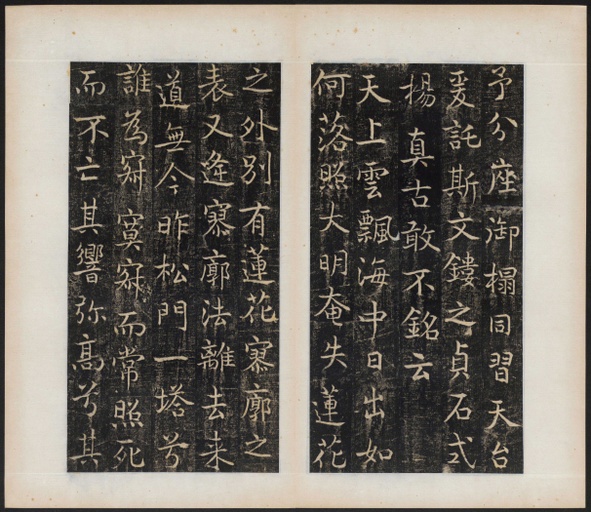 予分座御榻同習天台
爰託斯文鏤之貞石式
揚真古敢不銘云
天上雲飄海中日出如
何落照大明奄失蓮花
之外別有蓮花寥廓之
表又逢寥廓法離去来
道無今昨松門一塔兮
誰為寂寞寂而常照死
而不亡其響弥高兮其